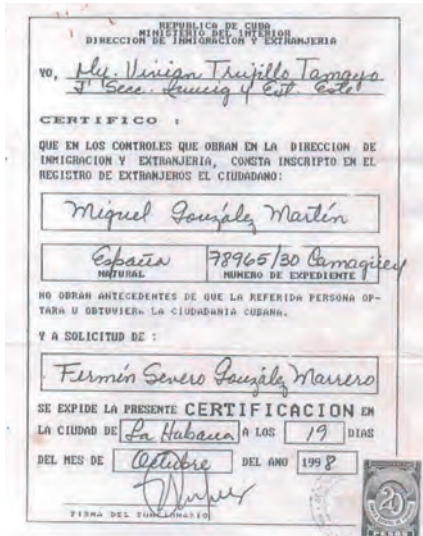 REPUBLICA DE CUBA
MINISTERIO DEL INTERIOR
DIRECCION DE INMIGRACION Y EXTRANJERIA
YO, My. Vivian Trujillo Tamayo
J' Secc. Inmig y Ext. Este
CERTIFICO :
QUE EN LOS CONTROLES QUE OBRAN EN LA DIRECCION DE
INMIGRACION Y EXTRANJERIA, CONSTA INSCRIPTO EN EL
REGISTRO DE EXTRANJEROS EL CIUDADANO:
Miguel González Martín
España 78965/30 Camagüey
NATURAL NUMERO DE EXPEDIENTE
NO OBRAN ANTECEDENTES DE QUE LA REFERIDA PERSONA OP-
TARA U OBTUVIERA LA CIUDADANIA CUBANA.
Y A SOLICITUD DE :
Fermín Severo González Marrero
SE EXPIDE LA PRESENTE CERTIFICACION EN
LA CIUDAD DE La Habana A LOS 19 DIAS
DEL MES DE Octubre DEL ANO 1998
FIRMA DEL FUNCIONARIO
20
PESOS